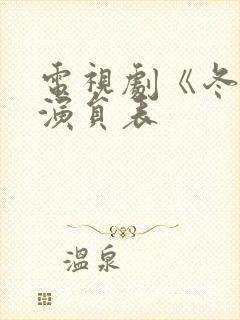 電視劇《冬
演員表
溫泉